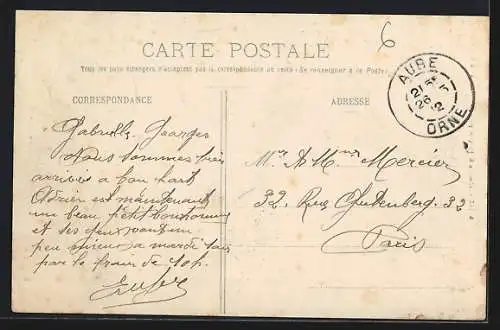 CARTE POSTALE
Tous les pays étrangers n'acceptent pas la correspondance au recto (Se renseigner à la Poste)
6
AUBE
21
26 3
12
ORNE
CORRESPONDANCE
ADRESSE
Gabrielle, Georges
Nous sommes bien
arrivés a bon port
Adrien est maintenant
un beau petit bonhomme
et les deux
peu mieux a mardi soir
par le train de 10h.
Mr & Mme Mercier
32. Rue Gutenberg. 32
Paris